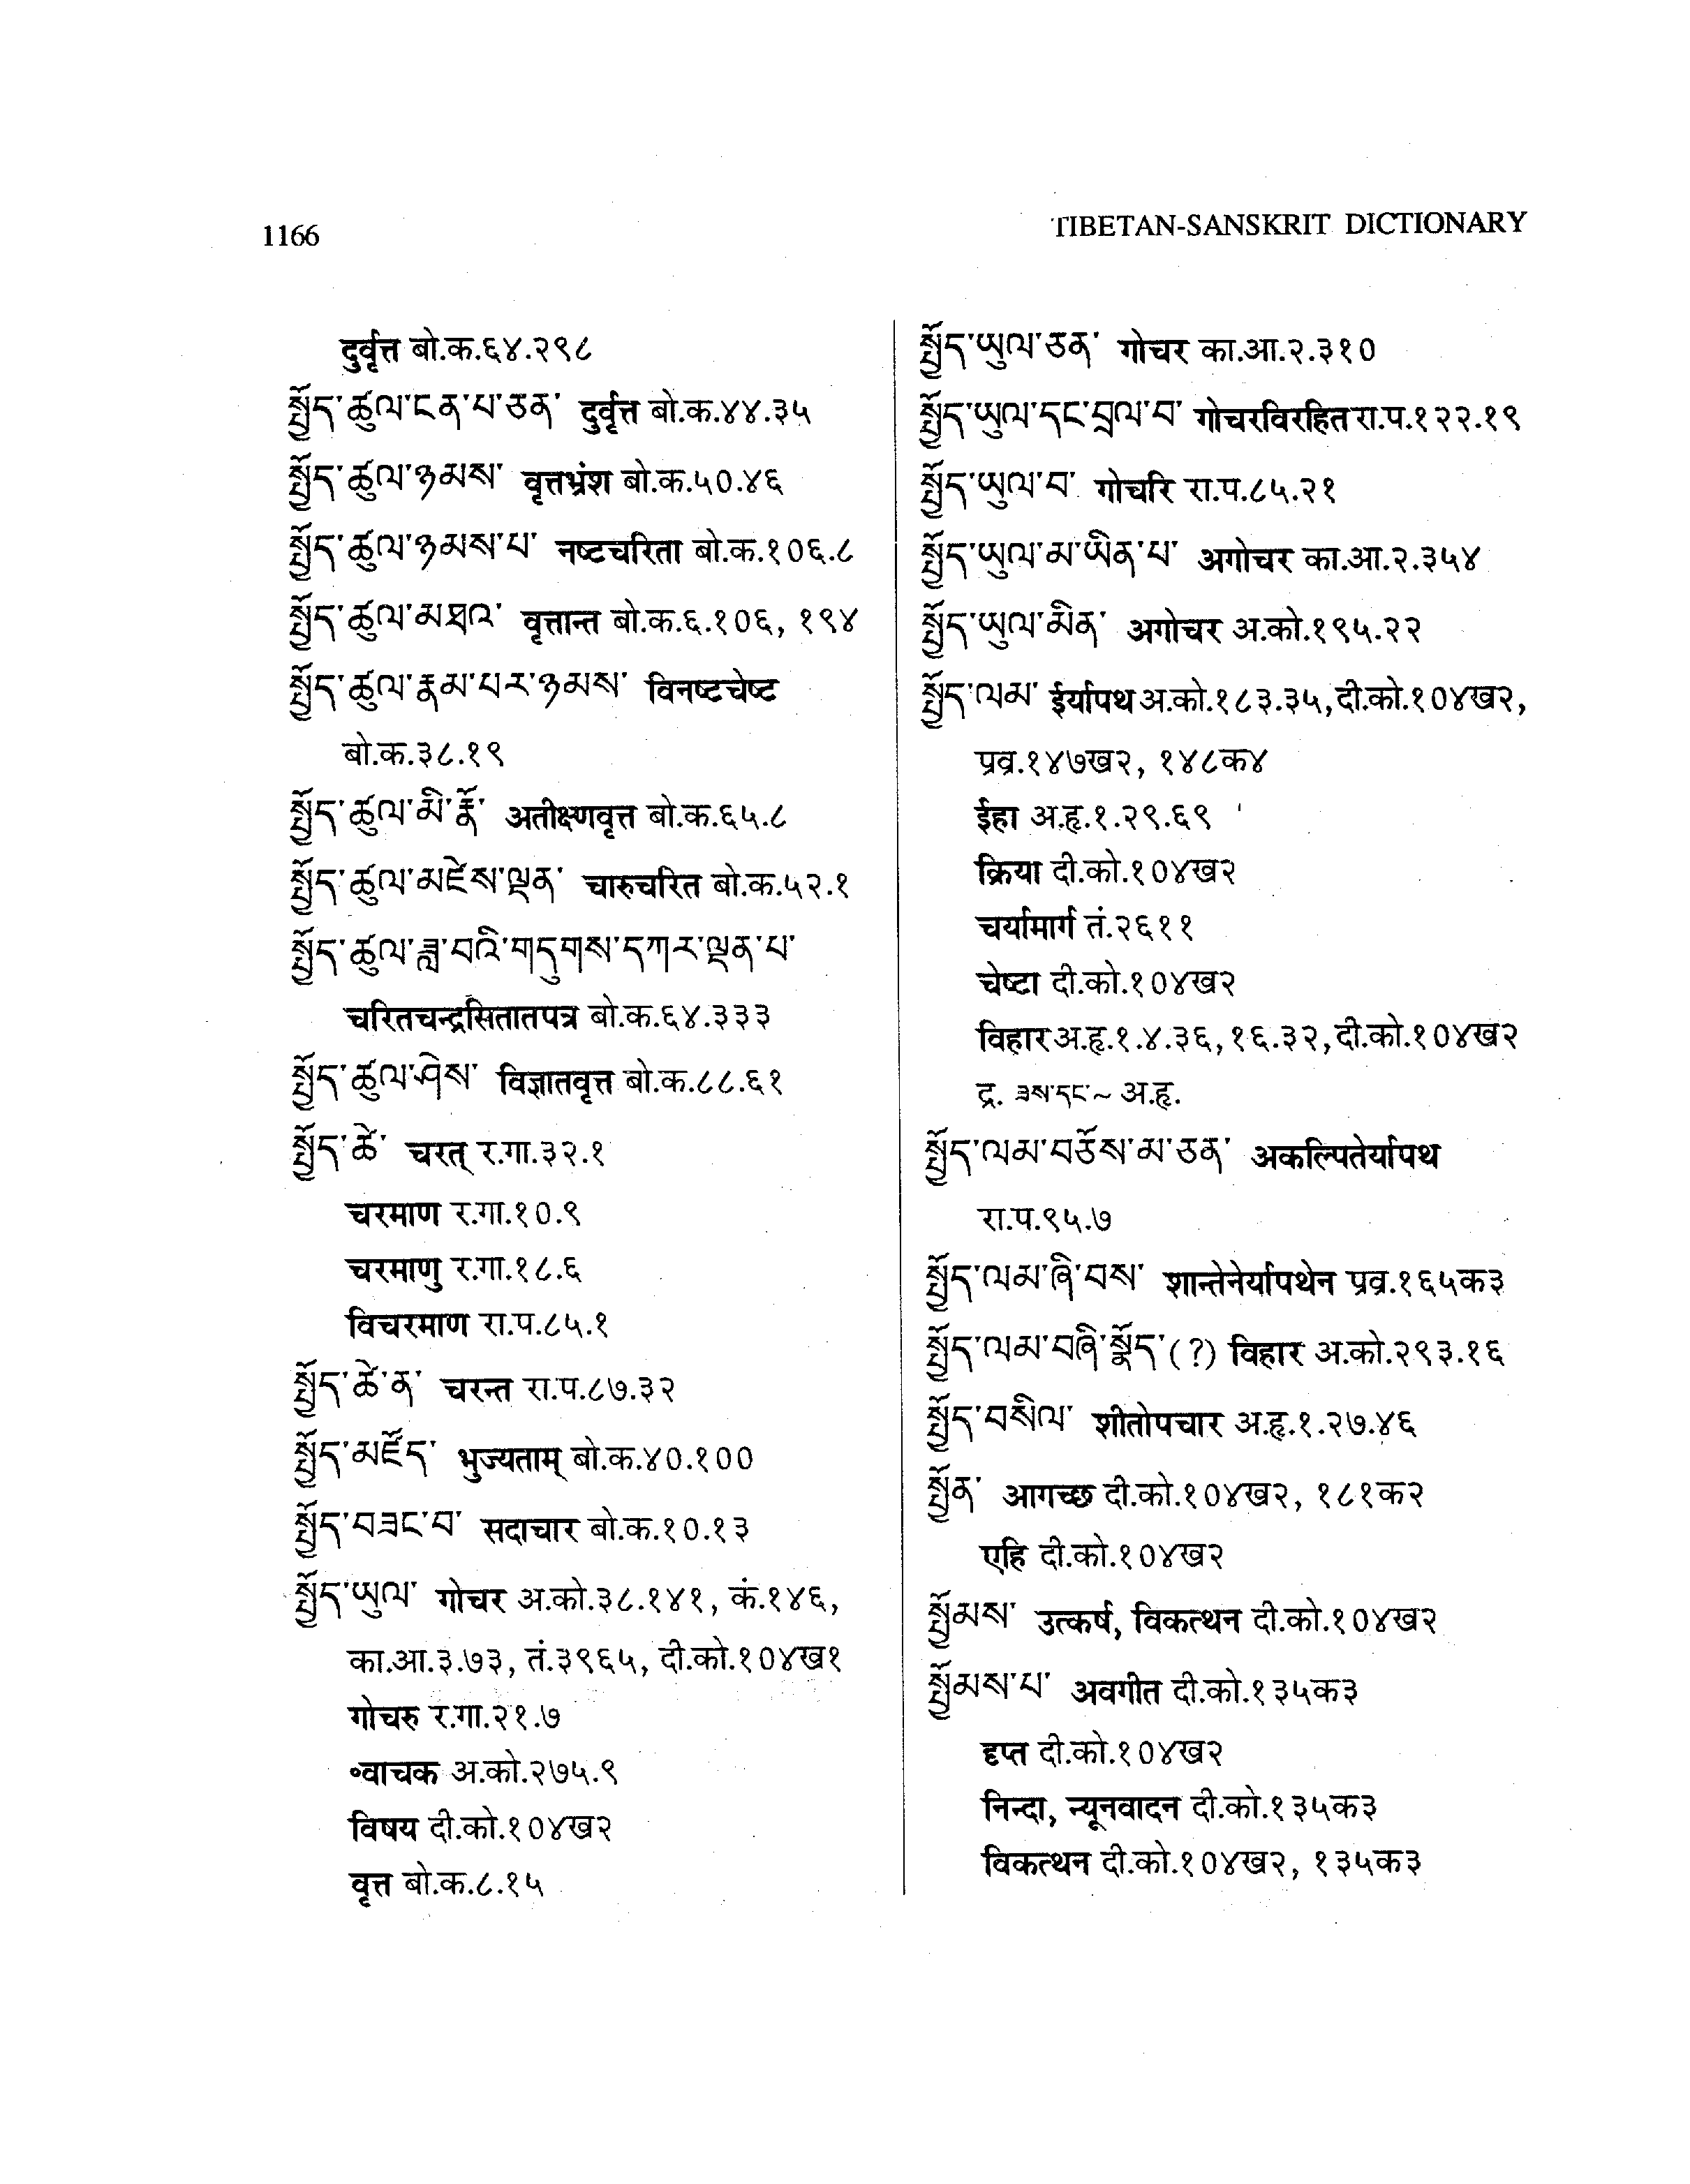 1166
TIBETAN-SANSKRIT DICTIONARY
दुर्वृत्त बो.क.६४.२९८
སྤྱོད་ཚུལ་ངན་པ་ཅན་ दुर्वृत्त बो.क.४४.३५
སྤྱོད་ཚུལ་ཉམས་ वृत्तभ्रंश बो.क.५०.४६
སྤྱོད་ཚུལ་ཉམས་པ་ नष्टचरिता बो.क.१०६.८
སྤྱོད་ཚུལ་མཐའ་ वृत्तान्त बो.क.६.१०६, १९४
སྤྱོད་ཚུལ་རྣམ་པར་ཉམས་ विनष्टचेष्ट
बो.क.३८.१९
སྤྱོད་ཚུལ་མི་རྣོ་ अतीक्ष्णवृत्त बो.क.६५.८
སྤྱོད་ཚུལ་མཛེས་ལྡན་ चारुचरित बो.क.५२.१
སྤྱོད་ཚུལ་ཟླ་བའི་གདུགས་དཀར་ལྡན་པ་
चरितचन्द्रसितातपत्र बो.क.६४.३३३
སྤྱོད་ཚུལ་ཤེས་ विज्ञातवृत्त बो.क.८८.६१
སྤྱོད་ཚེ་ चरत् र.गा.३२.१
चरमाण र.गा.१०.९
चरमाणु र.गा.१८.६
विचरमाण रा.प.८५.१
སྤྱོད་ཚེ་ན་ चरन्त रा.प.८७.३२
སྤྱོད་མཛོད་ भुज्यताम् बो.क.४०.१००
སྤྱོད་བཟང་བ་ सदाचार बो.क.१०.१३
སྤྱོད་ཡུལ་ गोचर अ.को.३८.१४१, कं.१४६,
का.आ.३.७३, तं.३९६५, दी.को.१०४ख१
गोचरु र.गा.२१.७
॰वाचक अ.को.२७५.९
विषय दी.को.१०४ख२
वृत्त बो.क.८.१५
སྤྱོད་ཡུལ་ཅན་ गोचर का.आ.२.३१०
སྤྱོད་ཡུལ་དང་བྲལ་བ་ गोचरविरहित रा.प.१२२.१९
སྤྱོད་ཡུལ་བ་ गोचरि रा.प.८५.२१
སྤྱོད་ཡུལ་མ་ཡིན་པ་ अगोचर का.आ.२.३५४
སྤྱོད་ཡུལ་མིན་ अगोचर अ.को.१९५.२२
སྤྱོད་ལམ་ ईर्यापथ अ.को.१८३.३५, दी.को.१०४ख२,
प्रव्र.१४७ख२, १४८क४
ईहा अ.हृ.१.२९.६९
क्रिया दी.को.१०४ख२
चर्यामार्ग तं.२६११
चेष्टा दी.को.१०४ख२
विहार अ.हृ.१.४.३६, १६.३२, दी.को.१०४ख२
द्र. ཟས་དང་~ अ.हृ.
སྤྱོད་ལམ་བཅོས་མ་ཅན་ अकल्पितेर्यापथ
रा.प.९५.७
སྤྱོད་ལམ་ཞི་བས་ शान्तेनेर्यापथेन प्रव्र.१६५क३
སྤྱོད་ལམ་བཞི་སྣོད་(?) विहार अ.को.२९३.१६
སྤྱོད་བསིལ་ शीतोपचार अ.हृ.१.२७.४६
སྤྱོན་ आगच्छ दी.को.१०४ख२, १८१क२
एहि दी.को.१०४ख२
སྤྱོམས་ उत्कर्ष, विकत्थन दी.को.१०४ख२
སྤྱོམས་པ་ अवगीत दी.को.१३५क३
दृप्त दी.को.१०४ख२
निन्दा, न्यूनवादन दी.को.१३५क३
विकत्थन दी.को.१०४ख२, १३५क३